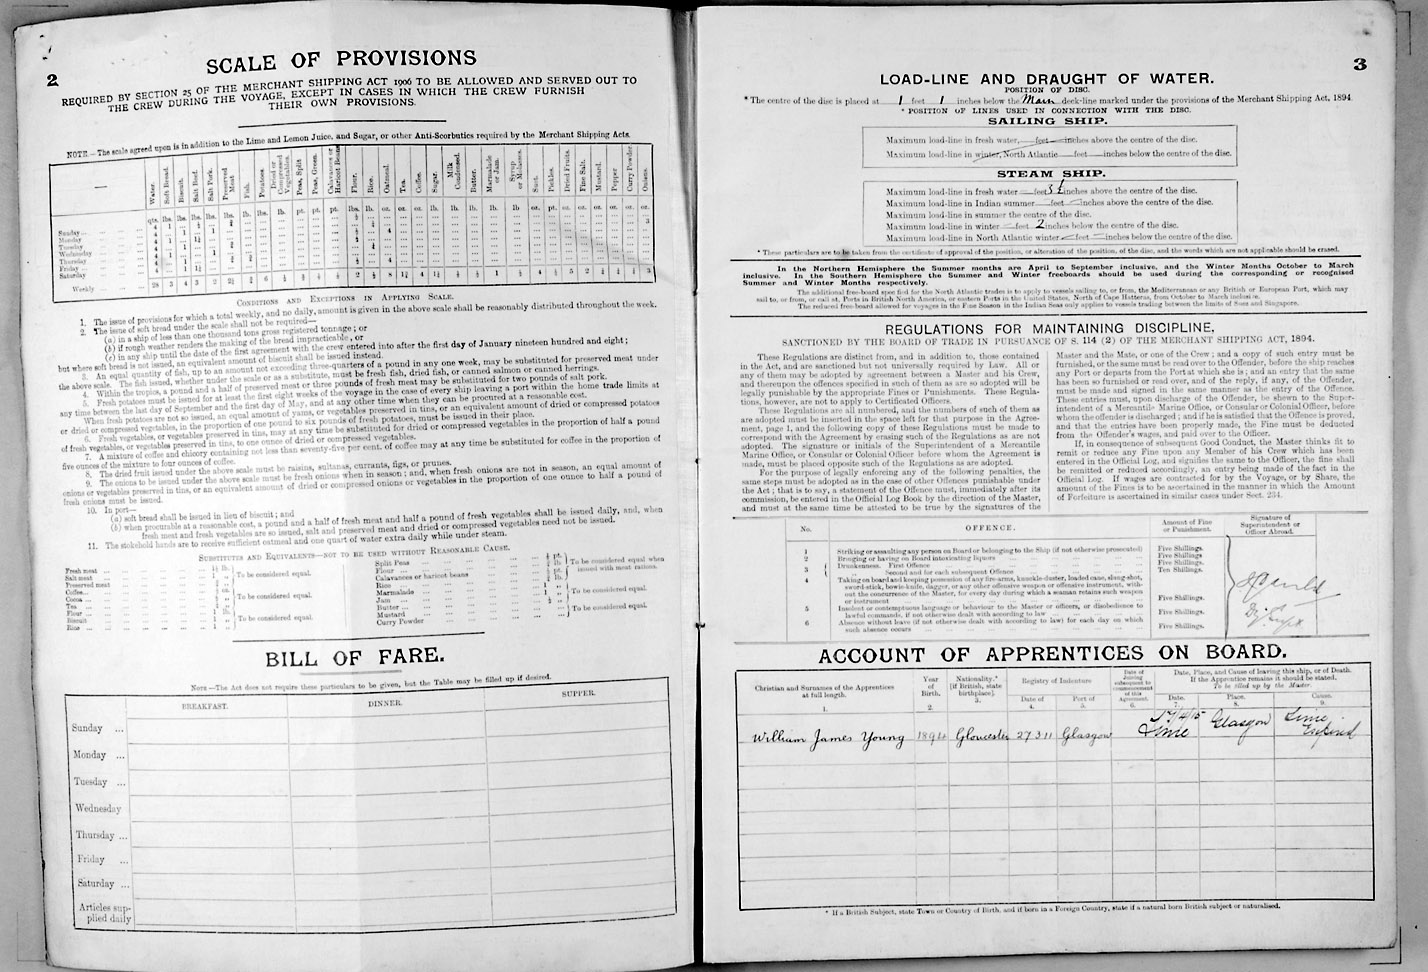 2
SCALE OF PROVISIONS
REQUIRED BY SECTION 25 OF THE MERCHANT SHIPPING ACT 1906 TO BE ALLOWED AND SERVED OUT TO
THE CREW DURING THE VOYAGE, EXCEPT IN CASES IN WHICH THE CREW FURNISH
THEIR OWN PROVISIONS.
NOTE.—The scale agreed upon is in addition to the Lime and Lemon Juice, and Sugar, or other Anti-Scorbutics required by the Merchant Shipping Acts.
Water. Soft Bread. Biscuit. Salt Beef. Salt Pork. Preserved Meat Fish. Potatoes. Dried or Compressed Vegetables. Peas, Split Peas, Green. Calavances or Haricot Beans Flour. Rice. Oatmeal. Tea. Coffee. Sugar. Milk Condensed. Butter. Marmalade or Jam. Syrup or Molasses. Suet. Pickles. Dried Fruits. Fine Salt. Mustard. Pepper Curry Powder. Onions.
qts. lbs. lbs. lbs. lbs. lbs. lb. lbs. lb. pt. pt. pt. lbs. lb. oz. oz. oz. lb. lb. lb. lb. lb. oz. pt. oz. oz. oz. oz. oz. oz.
Sunday
Monday
Tuesday
Wednesday
Thursday
Friday
Saturday
Weekly
CONDITIONS AND EXCEPTIONS IN APPLYING SCALE.
1. The issue of provisions for which a total weekly, and no daily, amount is given in the above scale shall be reasonably distributed throughout the week.
2. The issue of soft bread under the scale shall not be required—
(a) in a ship of less than one thousand tons gross registered tonnage; or
(b) if rough weather renders the making of the bread impracticable, or
(c) in any ship until the date of the first agreement with the crew entered into after the first day of January nineteen hundred and eight;
but where soft bread is not issued, an equivalent amount of biscuit shall be issued instead.
3. An equal quantity of fish, up to an amount not exceeding three-quarters of a pound in any one week, may be substituted for preserved meat under
the above scale. The fish issued, whether under the scale or as a substitute, must be fresh fish, dried fish, or canned salmon or canned herrings.
4. Within the tropics, a pound and a half of preserved meat or three pounds of fresh meat may be substituted for two pounds of salt pork.
5. Fresh potatoes must be issued for at least the first eight weeks of the voyage in the case of every ship leaving a port within the home trade limits at
any time between the last day of September and the first day of May, and at any other time when they can be procured at a reasonable cost.
When fresh potatoes are not so issued, an equal amount of yams, or vegetables preserved in tins, or an equivalent amount of dried or compressed potatoes
or dried or compressed vegetables, in the proportion of one pound to six pounds of fresh potatoes, must be issued in their place.
6. Fresh vegetables, or vegetables preserved in tins, may at any time be substituted for dried or compressed vegetables in the proportion of half a pound
of fresh vegetables, or vegetables preserved in tins, to one ounce of dried or compressed vegetables.
7. A mixture of coffee and chicory containing not less than seventy-five per cent. of coffee may at any time be substituted for coffee in the proportion of
five ounces of the mixture to four ounces of coffee.
8. The dried fruit issued under the above scale must be raisins, sultanas, currants, figs, or prunes.
9. The onions to be issued under the above scale must be fresh onions when in season; and, when fresh onions are not in season, an equal amount of
onions or vegetables preserved in tins, or an equivalent amount of dried or compressed onions or vegetables in the proportion of one ounce to half a pound of
fresh onions must be issued.
10. In port—
(a) soft bread shall be issued in lieu of biscuit; and
(b) when procurable at a reasonable cost, a pound and a half of fresh meat and half a pound of fresh vegetables shall be issued daily, and, when
fresh meat and fresh vegetables are so issued, salt and preserved meat and dried or compressed vegetables need not be issued.
11. The stokehold hands are to receive sufficient oatmeal and one quart of water extra daily while under steam.
SUBSTITUTES AND EQUIVALENTS—NOT TO BE USED WITHOUT REASONABLE CAUSE.
Fresh meat
Salt meat
Preserved meat
To be considered equal.
Coffee
Cocoa
Tea
To be considered equal.
Flour
Biscuit
Rice
To be considered equal.
Split Peas
Flour
Calavances or haricot beans
Rice
To be considered equal when
issued with meat rations.
Marmalade
Jam
Butter
To be considered equal.
Mustard
Curry Powder
To be considered equal.
BILL OF FARE.
NOTE—The Act does not require these particulars to be given, but the Table may be filled up if desired.
BREAKFAST. DINNER. SUPPER.
Sunday ...
Monday ...
Tuesday ...
Wednesday
Thursday ...
Friday ...
Saturday ...
Articles sup-
plied daily
3
LOAD-LINE AND DRAUGHT OF WATER.
POSITION OF DISC.
* The centre of the disc is placed at 1 feet 1 inches below the Main deck-line marked under the provisions of the Merchant Shipping Act, 1894
* POSITION OF LINES USED IN CONNECTION WITH THE DISC.
SAILING SHIP.
Maximum load-line in fresh water, — feet — inches above the centre of the disc.
Maximum load-line in winter, North Atlantic — feet — inches below the centre of the disc.
STEAM SHIP.
Maximum load-line in fresh water — feet inches above the centre of the disc.
Maximum load-line in Indian summer — feet — inches above the centre of the disc.
Maximum load-line in summer the centre of the disc.
Maximum load-line in winter — feet 2 inches below the centre of the disc.
Maximum load-line in North Atlantic winter — feet — inches below the centre of the disc.
* These particulars are to be taken from the certificate of approval of the position, or alteration of the position, of the disc, and the words which are not applicable should be erased.
In the Northern Hemisphere the Summer months are April to September inclusive, and the Winter Months October to March
inclusive. In the Southern Hemisphere the Summer and Winter freeboards should be used during the corresponding or recognised
Summer and Winter Months respectively.
The additional free-board specified for the North Atlantic trades is to apply to vessels sailing to, or from, the Mediterranean or any British or European Port, which may
sail to, or from, or call at, Ports in British North America, or eastern Ports in the United States, North of Cape Hatteras, from October to March inclusive.
The reduced free-board allowed for voyages in the Fine Season in the Indian Seas only applies to vessels trading between the limits of Suez and Singapore.
REGULATIONS FOR MAINTAINING DISCIPLINE,
SANCTIONED BY THE BOARD OF TRADE IN PURSUANCE OF S. 114 (2) OF THE MERCHANT SHIPPING ACT, 1894.
These Regulations are distinct from, and in addition to, those contained
in the Act, and are sanctioned but not universally required by Law. All or
any of them may be adopted by agreement between a Master and his Crew,
and thereupon the offences specified in such of them as are so adopted will be
legally punishable by the appropriate Fines or Punishments. These Regula-
tions, however, are not to apply to Certificated Officers.
These Regulations are all numbered, and the numbers of such of them as
are adopted must be inserted in the space left for that purpose in the Agree-
ment, page 1, and the following copy of these Regulations must be made to
correspond with the Agreement by erasing such of the Regulations as are not
adopted. The signature or initials of the Superintendent of a Mercantile
Marine Office, or Consular or Colonial Officer before whom the Agreement is
made, must be placed opposite such of the Regulations as are adopted.
For the purpose of legally enforcing any of the following penalties, the
same steps must be adopted as in the case of other Offences punishable under
the Act; that is to say, a statement of the Offence must, immediately after its
commission, be entered in the Official Log Book by the direction of the Master,
and must at the same time be attested to be true by the signatures of the
Master and the Mate, or one of the Crew; and a copy of such entry must be
furnished, or the same must be read over to the Offender, before the ship reaches
any Port or departs from the Port at which she is; and an entry that the same
has been so furnished or read over, and of the reply, if any, of the Offender,
must be made and signed in the same manner as the entry of the Offence.
These entries must, upon discharge of the Offender, be shewn to the Super-
intendent of a Mercantile Marine Office, or Consular or Colonial Officer, before
whom the offender is discharged; and if he is satisfied that the Offence is proved,
and that the entries have been properly made, the Fine must be deducted
from the Offender's wages, and paid over to the Officer.
If, in consequence of subsequent Good Conduct, the Master thinks fit to
remit or reduce any Fine upon any Member of his Crew which has been
entered in the Official Log, and signifies the same to the Officer, the fine shall
be remitted or reduced accordingly, an entry being made of the fact in the
Official Log. If wages are contracted for by the Voyage, or by Share, the
amount of the Fines is to be ascertained in the manner in which the Amount
of Forfeiture is ascertained in similar cases under Sect. 234.
No. OFFENCE. Amount of Fine or Punishment. Signature of Superintendent or Officer Abroad.
1 Striking or assaulting any person on Board or belonging to the Ship (if not otherwise prosecuted) Five Shillings.
2 Bringing or having on Board intoxicating liquors Five Shillings
3 Drunkenness. First Offence Five Shillings
Second and for each subsequent Offence Ten Shillings.
4 Taking on board and keeping possession of any fire-arms, knuckle-duster, loaded cane, slung-shot,
sword-stick, bowie-knife, dagger, or any other offensive weapon or offensive instrument, with-
out the concurrence of the Master, for every day during which a seaman retains such weapon
or instrument Five Shillings.
5 Insolent or contemptuous language or behaviour to the Master or officers, or disobedience to
lawful commands, if not otherwise dealt with according to law Five Shillings.
6 Absence without leave (if not otherwise dealt with according to law) for each day on which
such absence occurs Five Shillings.
ACCOUNT OF APPRENTICES ON BOARD.
Christian and Surnames of the Apprentices at full length. Year of Birth. Nationality.* [if British, state birthplace]. Registry of Indenture Date of Port of Date of Joining subsequent to commencement of this Agreement. Date, Place, and Cause of leaving this ship, or of Death. If the Apprentice remains it should be stated. To be filled up by the Master. Date. Place. Cause.
1. 2. 3. 4. 5. 6. 7. 8. 9.
William James Young 1894 Gloucester 27 3 11 Glasgow 17/4/15 Glasgow Time Expired
* If a British Subject, state Town or Country of Birth, and if born in a Foreign Country, state if a natural born British subject or naturalised.